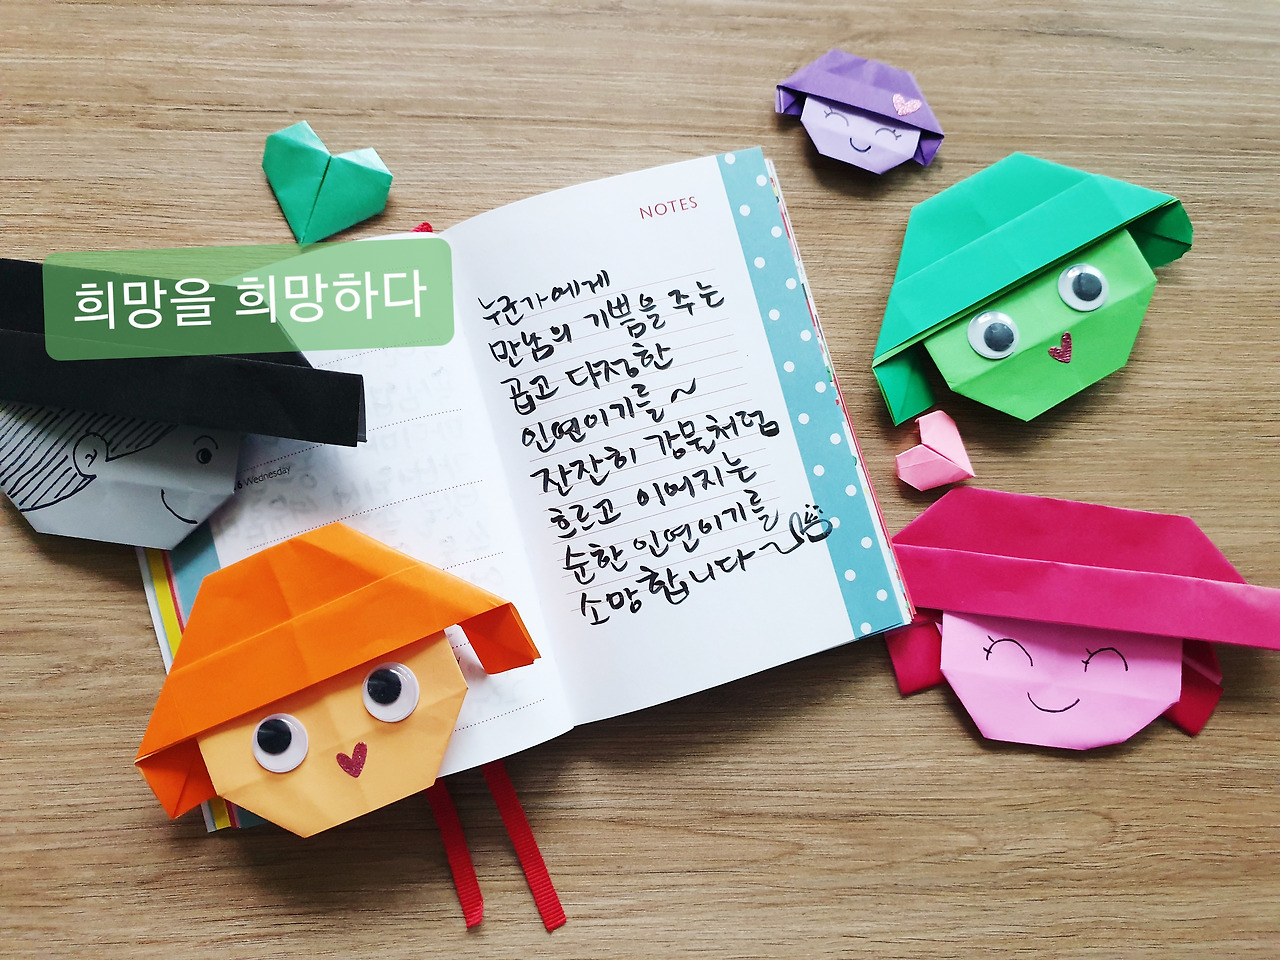 희망을 희망하다
NOTES
누군가에게
만남의 기쁨을 주는
곱고 다정한
인연이기를~
잔잔히 강물처럼
흐르고 이어지는
순한 인연이기를
소망합니다~
6 Wednesday